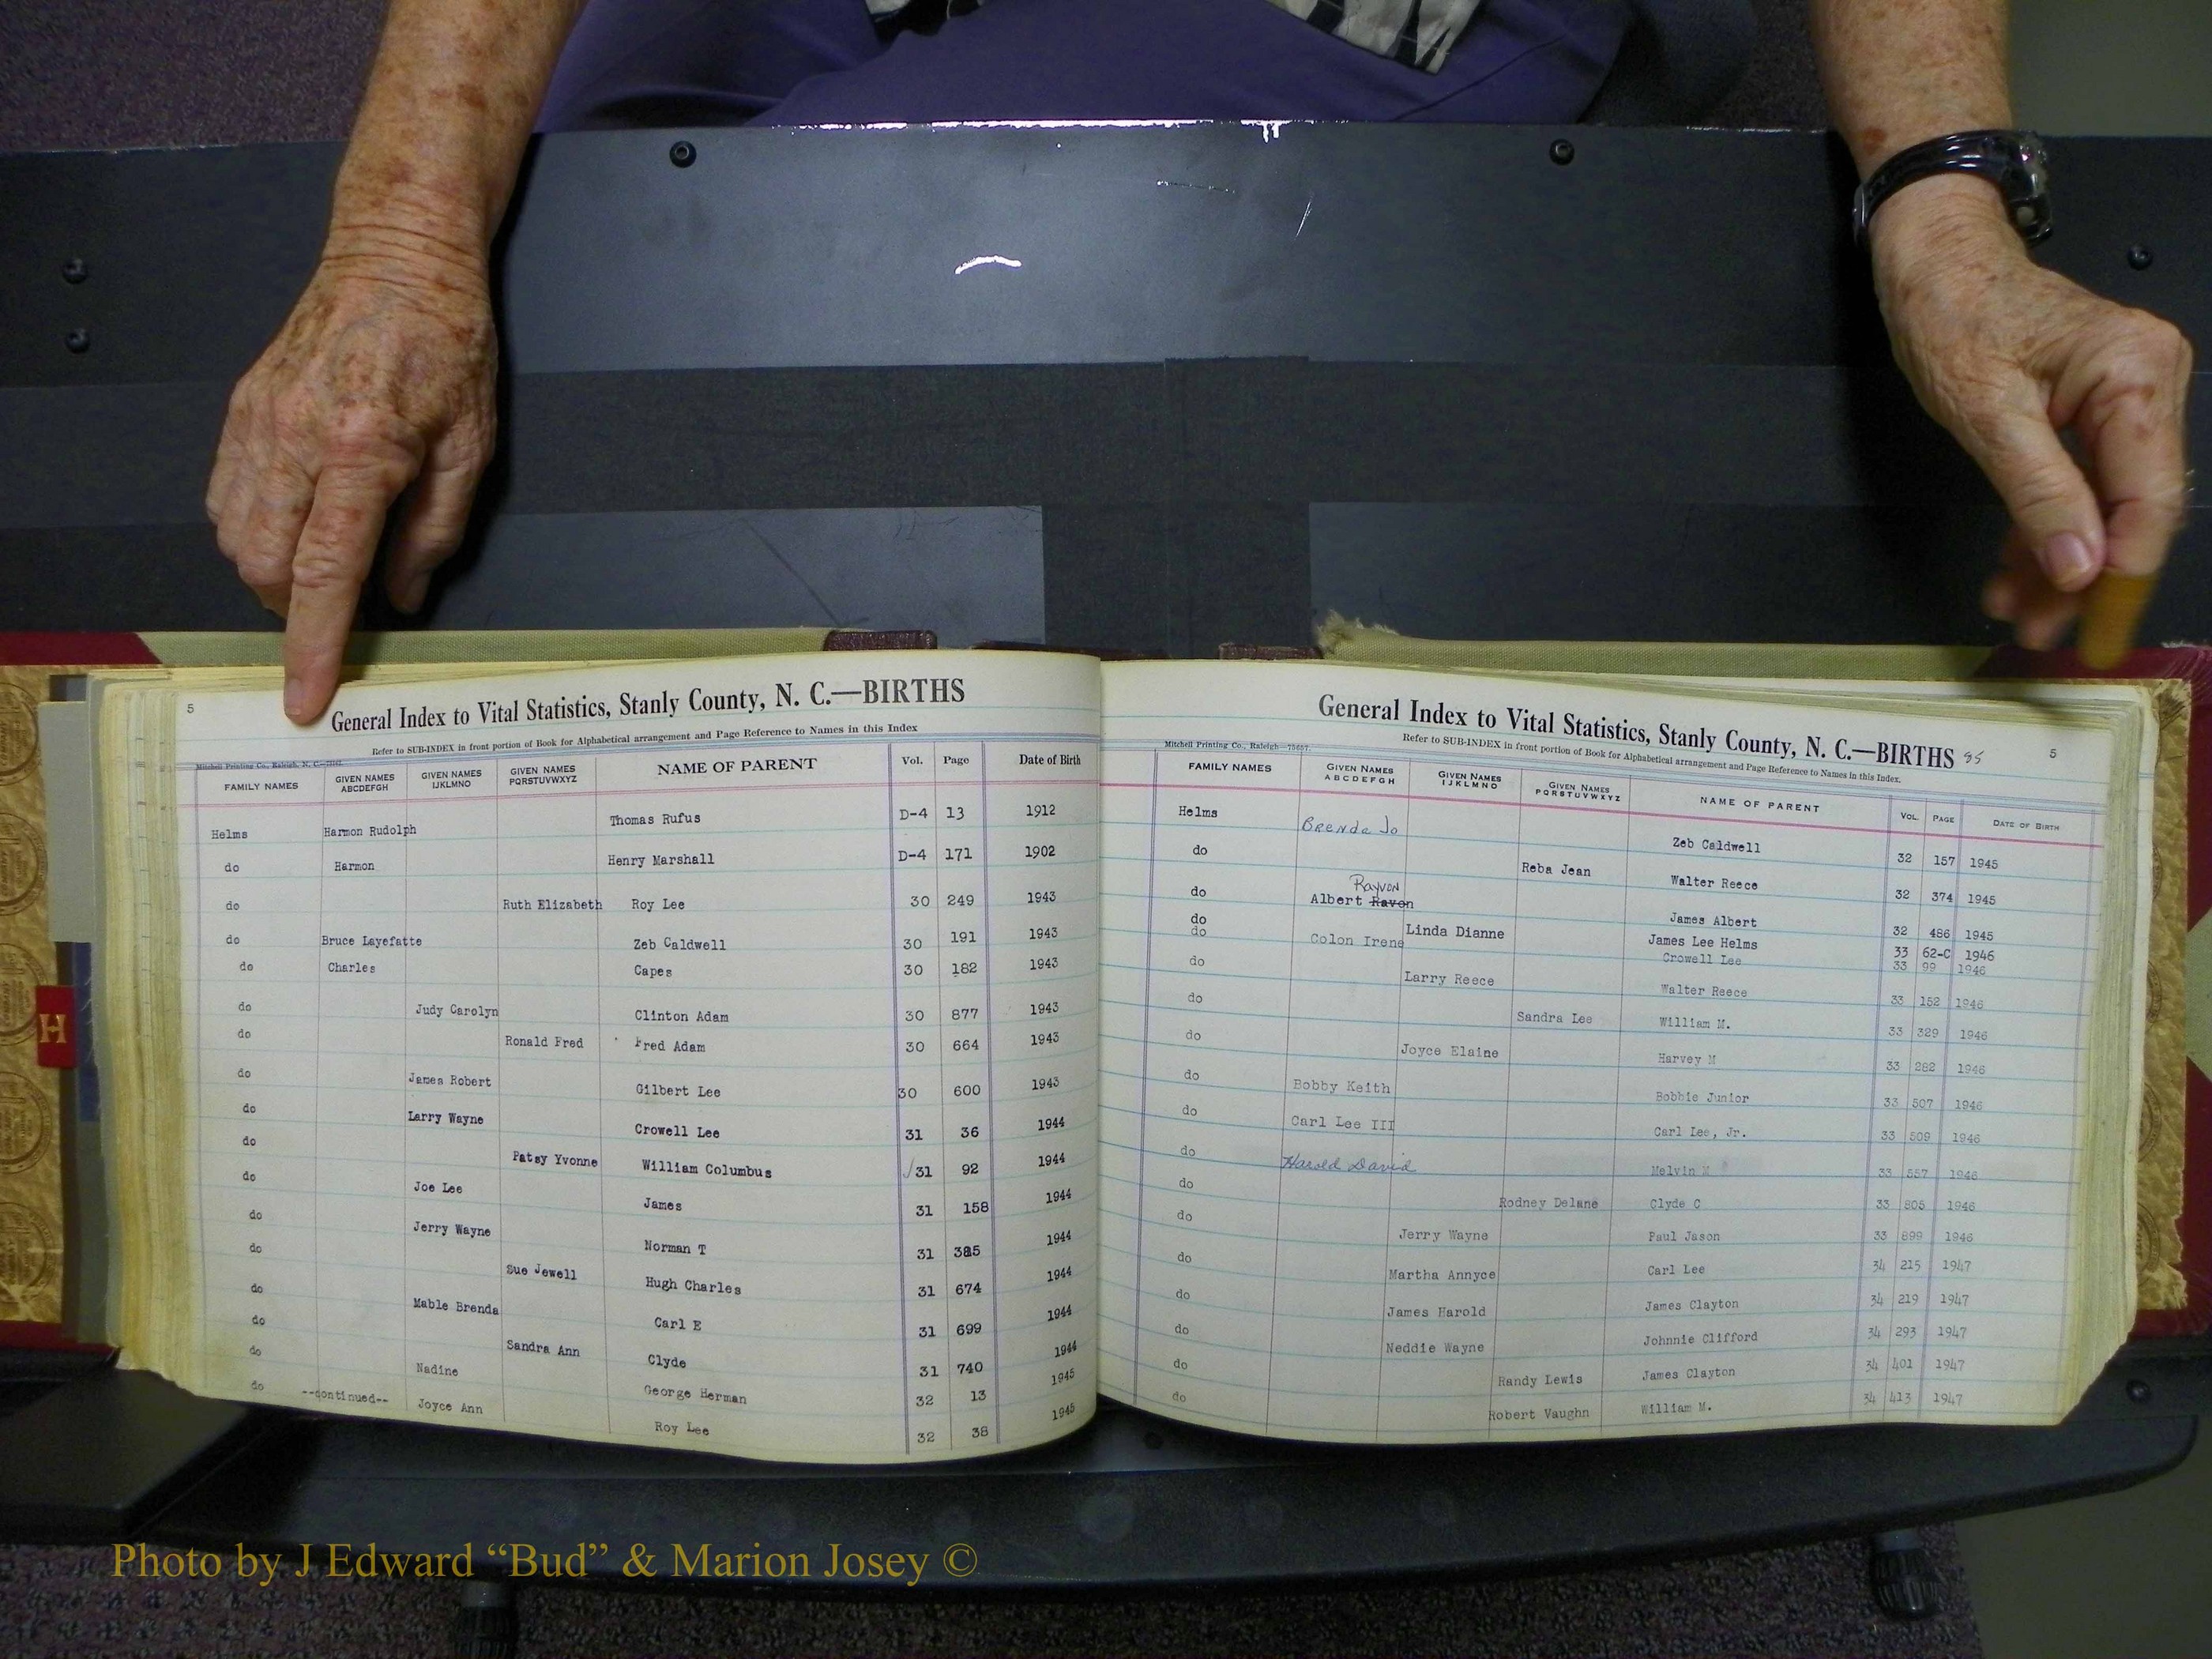 5
General Index to Vital Statistics, Stanly County, N. C.—BIRTHS
Refer to SUB-INDEX in front portion of Book for Alphabetical arrangement and Page Reference to Names in this Index
Mitchell Printing Co., Raleigh, N. C.
FAMILY NAMES GIVEN NAMES ABCDEFGH GIVEN NAMES IJKLMNO GIVEN NAMES PQRSTUVWXYZ NAME OF PARENT Vol. Page Date of Birth
Helms Harmon Rudolph Thomas Rufus D-4 13 1912
do Harmon Henry Marshall D-4 171 1902
do Ruth Elizabeth Roy Lee 30 249 1943
do Bruce Layefatte Zeb Caldwell 30 191 1943
do Charles Capes 30 182 1943
do Judy Carolyn Clinton Adam 30 877 1943
do Ronald Fred Fred Adam 30 664 1943
do James Robert Gilbert Lee 30 600 1943
do Larry Wayne Crowell Lee 31 36 1944
do Patsy Yvonne William Columbus 31 92 1944
do Joe Lee James 31 158 1944
do Jerry Wayne Norman T 31 385 1944
do Sue Jewell Hugh Charles 31 674 1944
do Mable Brenda Carl E 31 699 1944
do Sandra Ann Clyde 31 740 1944
do Nadine George Herman 32 13 1945
do --continued-- Joyce Ann Roy Lee 32 38 1945
General Index to Vital Statistics, Stanly County, N. C.—BIRTHS 85
5
Refer to SUB-INDEX in front portion of Book for Alphabetical arrangement and Page Reference to Names in this Index.
Mitchell Printing Co., Raleigh—75657
FAMILY NAMES GIVEN NAMES ABCDEFGH GIVEN NAMES IJKLMNO GIVEN NAMES PQRSTUVWXYZ NAME OF PARENT VOL. PAGE DATE OF BIRTH
Helms Brenda Jo Zeb Caldwell 32 157 1945
do Reba Jean Walter Reece 32 374 1945
Rayvon
do Albert Ravon James Albert 32 486 1945
do Linda Dianne James Lee Helms 33 62-C 1946
do Colon Irene Crowell Lee 33 99 1946
do Larry Reece Walter Reece 33 152 1946
do Sandra Lee William M. 33 329 1946
do Joyce Elaine Harvey M 33 282 1946
do Bobby Keith Bobbie Junior 33 507 1946
do Carl Lee III Carl Lee, Jr. 33 509 1946
do Harold David Melvin M 33 557 1946
do Rodney Delane Clyde C 33 805 1946
do Jerry Wayne Paul Jason 33 899 1946
do Martha Annyce Carl Lee 34 215 1947
do James Harold James Clayton 34 219 1947
do Neddie Wayne Johnnie Clifford 34 293 1947
do Randy Lewis James Clayton 34 401 1947
do Robert Vaughn William M. 34 413 1947
H
Photo by J Edward “Bud” & Marion Josey ©